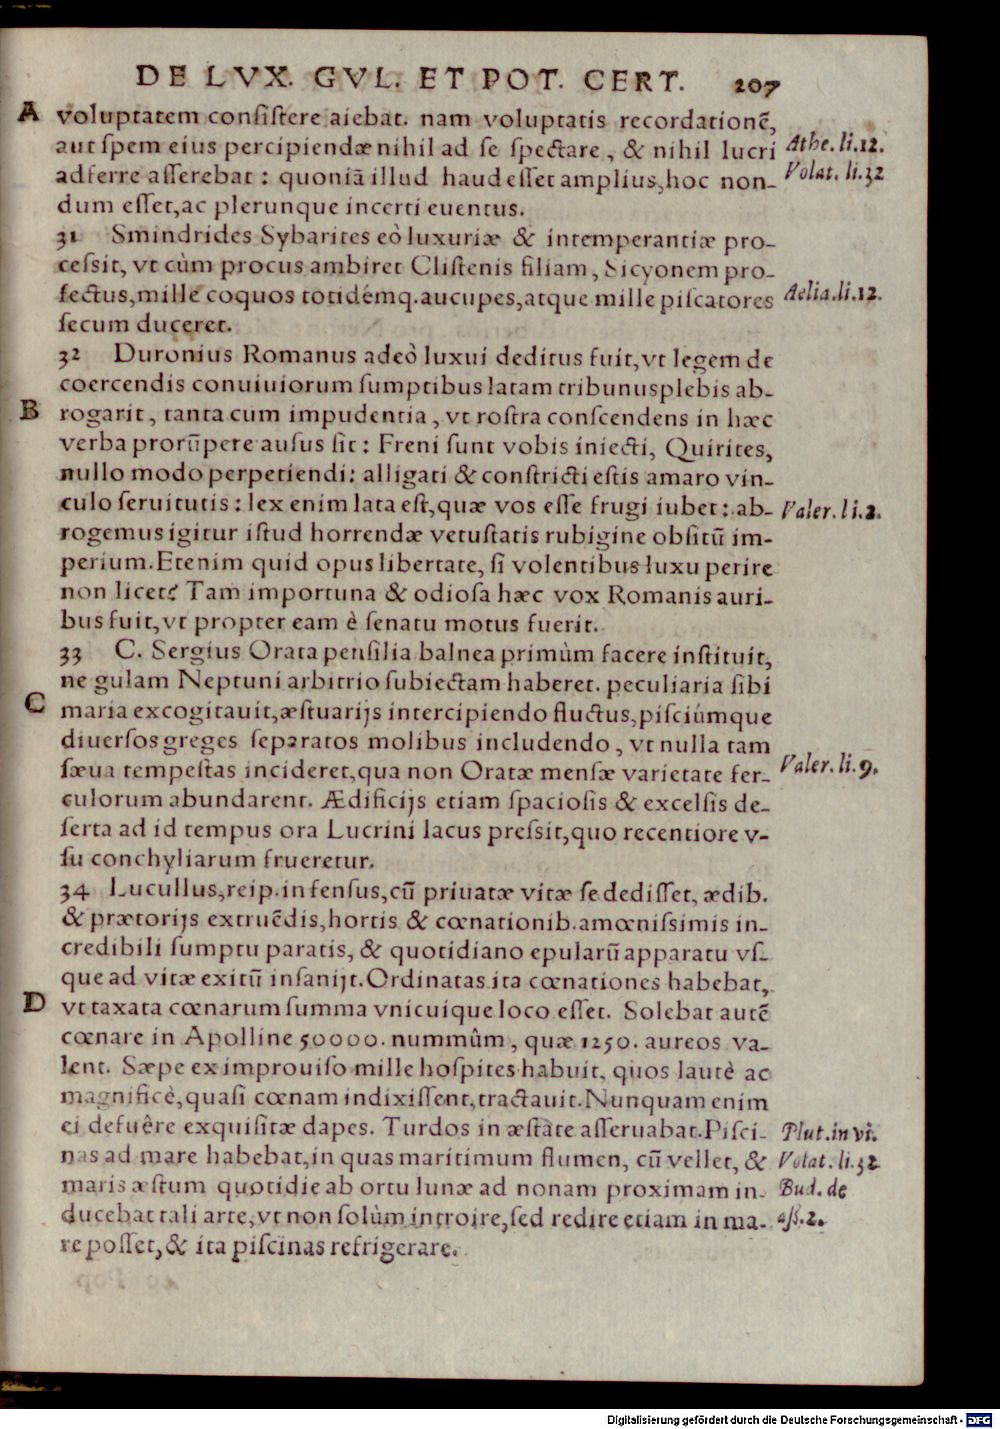 DE LVX. GVL. ET POT. CERT. 207
A voluptatem consiſtere aiebat. nam voluptatis recordationẽ,
aut ſpem eius percipiendæ nihil ad ſe ſpectare, & nihil lucri Athe. li.12.
adferre aſſerebat: quoniã illud haud eſſet amplius, hoc non- Volat. li.32
dum eſſet, ac plerunque incerti euentus.
31 Smindrides Sybarites eò luxuriæ & intemperantiæ pro-
ceſsit, vt cùm procus ambiret Cliſtenis filiam, Sicyonem pro-
fectus, mille coquos totidémq. aucupes, atque mille piſcatores Aelia. li.12.
ſecum duceret.
32 Duronius Romanus adeò luxui deditus fuit, vt legem de
coercendis conuiuiorum ſumptibus latam tribunus plebis ab-
B rogarit, tanta cum impudentia, vt roſtra conſcendens in hæc
verba prorũpere auſus ſit: Freni ſunt vobis iniecti, Quirites,
nullo modo perpetiendi: alligati & conſtricti eſtis amaro vin-
culo ſeruitutis: lex enim lata eſt, quæ vos eſſe frugi iubet: ab- Valer. li.2.
rogemus igitur iſtud horrendæ vetuſtatis rubigine obſitũ im-
perium. Etenim quid opus libertate, ſi volentibus luxu perire
non licet? Tam importuna & odioſa hæc vox Romanis auri-
bus fuit, vt propter eam è ſenatu motus fuerit.
33 C. Sergius Orata penſilia balnea primùm facere inſtituit,
ne gulam Neptuni arbitrio ſubiectam haberet. peculiaria ſibi
C maria excogitauit, æſtuarijs intercipiendo fluctus, piſciúmque
diuerſos greges ſeparatos molibus includendo, vt nulla tam
ſæua tempeſtas incideret, qua non Oratæ menſæ varietate fer- Valer. li.9.
culorum abundarent. Ædificijs etiam ſpacioſis & excelſis de-
ſerta ad id tempus ora Lucrini lacus preſsit, quo recentiore v-
ſu conchyliarum frueretur.
34 Lucullus, reip. infenſus, cũ priuatæ vitæ ſe dediſſet, ædib.
& prætorijs extruẽdis, hortis & cœnationib. amœniſsimis in-
credibili ſumptu paratis, & quotidiano epularũ apparatu vſ-
que ad vitæ exitũ inſanijt. Ordinatas ita cœnationes habebat,
D vt taxata cœnarum ſumma vnicuique loco eſſet. Solebat autẽ
cœnare in Apolline 50000. nummûm, quæ 1250. aureos va-
lent. Sæpe ex improuiſo mille hoſpites habuit, quos lautè ac
magnificè, quaſi cœnam indixiſſent, tractauit. Nunquam enim
ei defuêre exquiſitæ dapes. Turdos in æſtate aſſeruabat. Piſci- Plut. in vi.
nas ad mare habebat, in quas maritimum flumen, cũ vellet, & Volat. li.32
maris æſtum quotidie ab ortu lunæ ad nonam proximam in- Bud. de
ducebat tali arte, vt non ſolùm introire, ſed redire etiam in ma- aſſ. 2.
re poſſet, & ita piſcinas refrigerare.
Digitalisierung gefördert durch die Deutsche Forschungsgemeinschaft - DFG